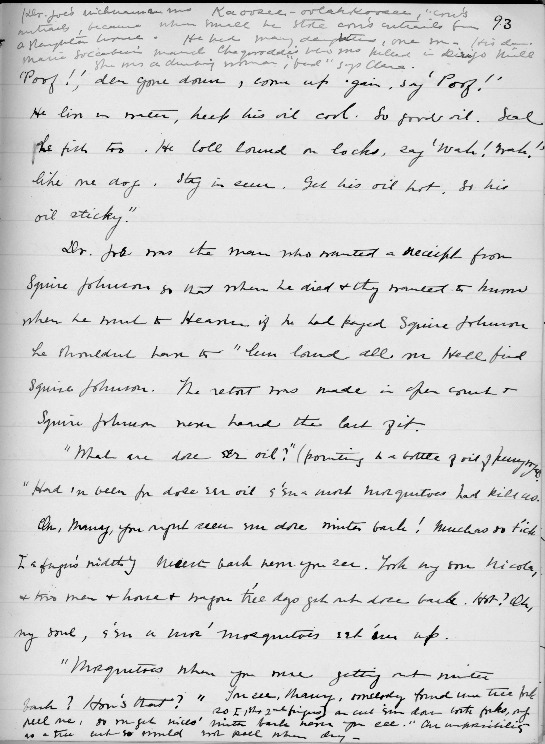 93
Dr. Joe's nickname was Kaoosee - "cow's
entrails, because when small he stole cow's entrails from
a slaughter house. He had many , one was
Marie Soccabesin married he was killed in Mill
She was a drinking woman, "bad" says Clara.
'Poof!', den gone down, come up 'gain, say 'Poof!'
He live in water, keep his oil cool. So good oil. Seal
he fish too. He loll lound on locks, say 'Wah! Wah!'
like me dog. Stay in sun. Get his oil hot. So his
oil sticky."
Dr. Joe was the man who wanted a receipt from
Squire Johnson so that when he died & they wanted to know
when he went to Heaven if he had payed Squire Johnson
he shouldn't have to "lun lound all over Hell find
Squire Johnson. The retort was made in open court &
Squire Johnson never heard the last of it.
"What are dose oil?" (pointing to a bottle of oil of pennyroyal)
"Had in been for dose oil e'en a most mosquitoes had kill us.
Oh, Manny, you right seen dose winter bark! Much as so tick
I a finger's width) nicest bark never you see. Took my son Nicola,
& two men & horse & wagon t'ree days get out dose bark. Hot? Oh,
my soul, e'en a mos' mosquitoes eat 'em up.
"Mosquitoes when you were getting out winter
bark? How's that?" "You see, Manny, somebody found um tree
peel me, so I, cut 'em down
so we get nices' winter bark never you see." An impossibility
as a tree cut so would not peel when dry -